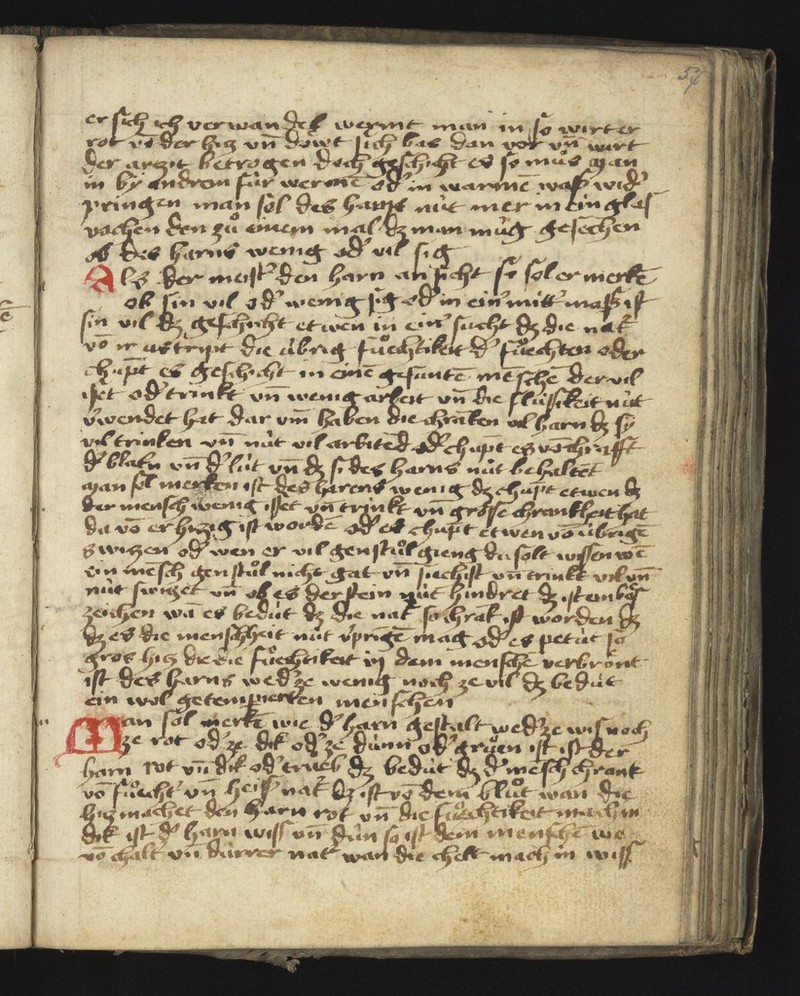 57
er sich ich verwandel wermt man in so wirt er
rot vō der hiz vn̄ döwt sich bas dan vor vn̄ wirt
der arzit betrogen doch geschicht es so můs man
in by andrem für wermē od' in warmē wass wid'
pringen man sol des harns nüt mer in ein glas
vachen den zů einem mal dz man müg gesechen
ob des harns wenig od' vil sig
Als der meist' den harn an sicht so sol er merkē
ob sin vil od' wenig sig od' in ein' mitt mass ist
sin vil dz geschicht etwen in ein' sucht dz die nat'
vō ir ustript die übrig fůechtikeit d' fůechten oder
chupt es geschicht in einē gesuntē mēschē der vil
isset od' trinkt vn̄ wenig arbeit vn̄ die flüssikeit nüt
v'wendet hat dar vm̄ haben die chrāken vil harn dz sy
vil trinken vn̄ nüt vil arbited od' chupt es vō chrafft
d' blatn vn̄ d' lüt vn̄ dz si des harns nüt behaltet
man sol merken ist des harens wenig dz chupt etwen dz
der mensch wenig isset vn̄ trinkt vn̄ grosse chrankheit hat
da vō er hizig ist wordē od' es chupt etwen vō übrigē
swizen od' wen er vil gen stůl gieng da solt wissen wē
ein mesch gen stůl nicht gat vn̄ siech ist vn̄ trinkt vil vn̄
nüt swizet vn̄ ob es der stein nüt hindret dz ist ein bös
zeichen wā es bedüt dz die nat' so chrāk ist worden dz
dz es die menschheit nüt v'prīgē mag od' es petüt so
gros hiz die die fůechtikeit in dem menschē verbrönt
ist des harns wed' ze wenig noch ze vil dz bedüt
ein wol getemperierten menschen
Man sol merkē wie d' harn gestalt wed' ze wis noch
ze rot od' ze dik od' ze dünn od' grüen ist ist der
harn rot vn̄ dik od' trüeb dz bedüt dz d' mēsch chrank
vō fůecht' vn̄ heiss' nat' dz ist vō dem blůt wan die
hiz machet den harn rot vn̄ die fůechtikeit mach in
dik ist d' harn wiss vn̄ dün so ist dem menschē we
vō chalt' vn̄ dürrer nat' wan die chelt mach in wiss